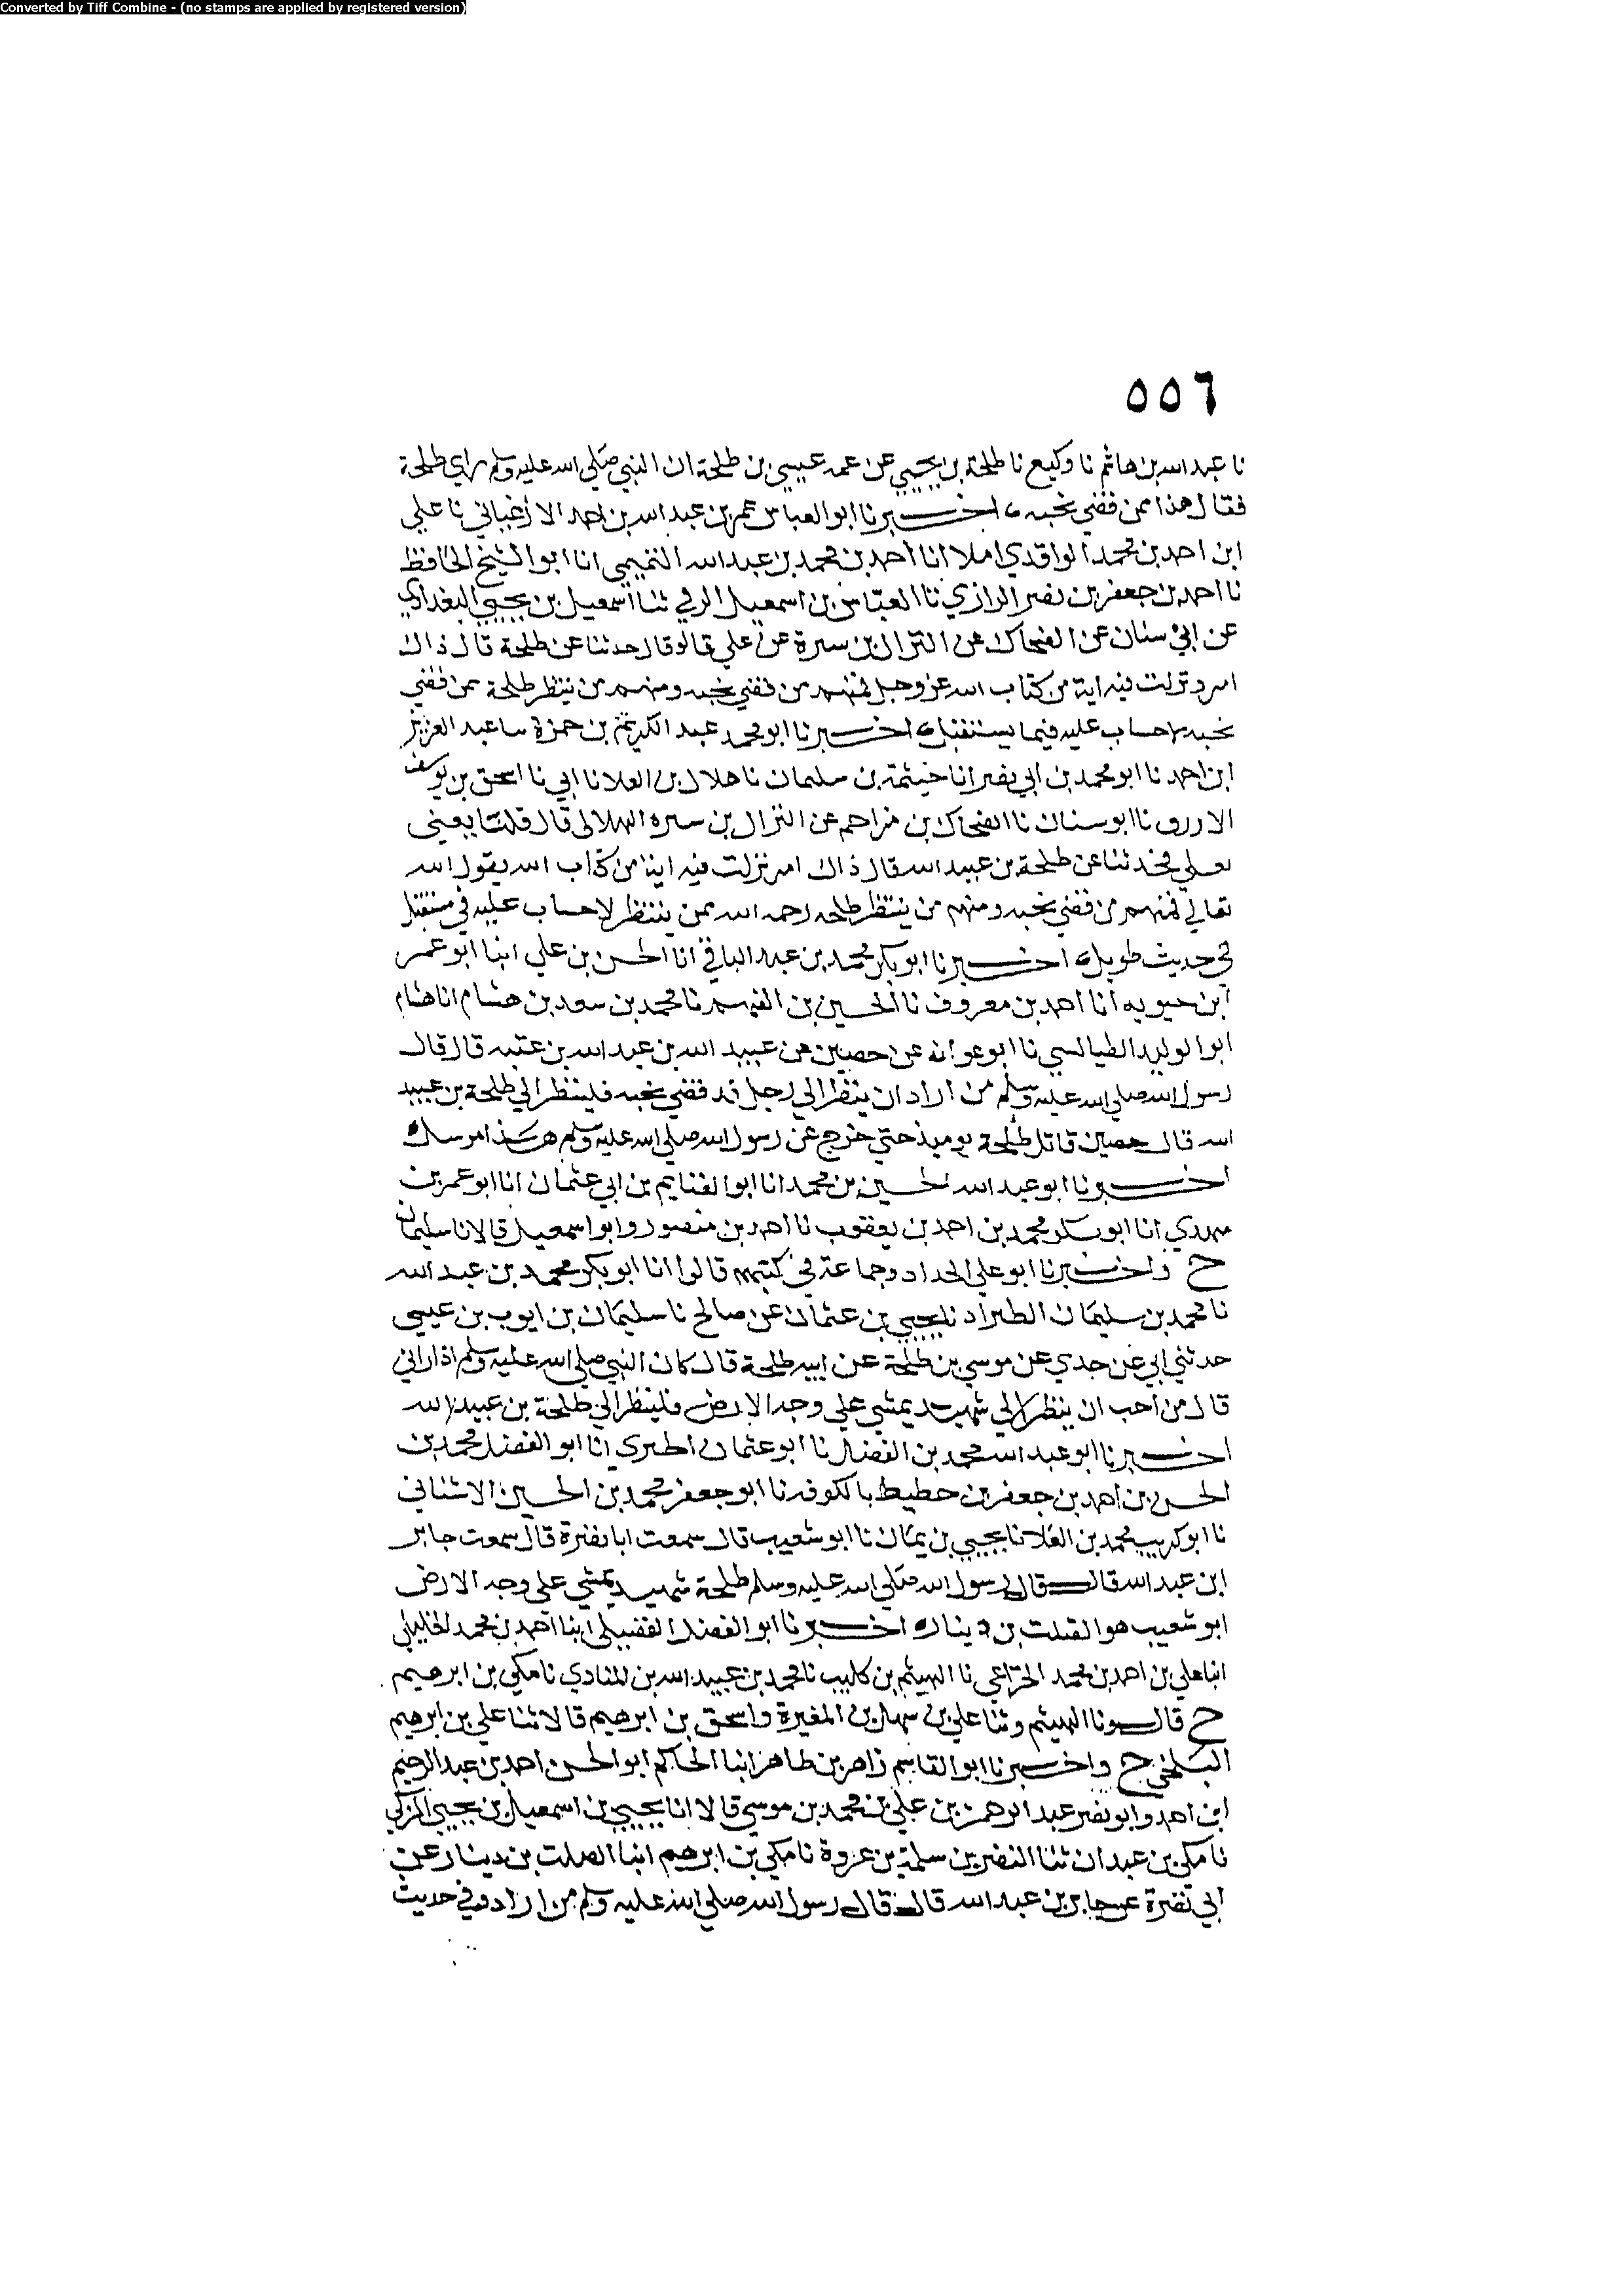 Converted by Tiff Combine - (no stamps are applied by registered version)
٥٥٦
نا عبد الله بن هاشم نا وكيع نا طلحة بن يحيى عن عمه عيسى بن طلحة ان النبي صلى الله عليه وسلم راى طلحة
فقال هذا ممن قضى نحبه اخبرنا ابو العباس عمر بن عبد الله بن احمد الارغياني نا علي
ابن احمد بن محمد الواقدي املا انا احمد بن محمد بن عبد الله التميمي انا ابو الشيخ الحافظ
نا احمد بن جعفر بن نصر الرازي نا العباس بن اسمعيل الرقي ثنا اسمعيل بن يحيى البغدادي
عن ابي سنان عن الضحاك عن النزال بن سبرة عن علي قالو قال حدثنا عن طلحة قال ذاك
امرو نزلت فيه اية من كتاب الله عز وجل فمنهم من قضى نحبه ومنهم من ينتظر طلحة ممن قضى
نحبه لا حساب عليه فيما يستقبل اخبرنا ابو محمد عبد الكريم بن حمزة سا عبد العزيز
ابن احمد نا ابو محمد بن ابي نصر انا خيثمة بن سليمان نا هلال بن العلا نا ابي نا اسحق بن يوسف
الازرق نا ابو سنان نا الضحاك بن مزاحم عن النزال بن سبره الهلالى قال قلنا يعني
لعلي فحدثنا عن طلحة بن عبيد الله قال ذاك امر نزلت فيه اية من كتاب الله يقول الله
تعالى فمنهم من قضى نحبه ومنهم من ينتظر طلحه رحمه الله ممن ينتظر لا حساب عليه في مستقبل
في حديث طويل اخبرنا ابو بكر محمد بن عبد الباقي انا الحسن بن علي ابنا ابو عمر
ابن حيويه انا احمد بن معروف نا الحسين بن الفهم نا محمد بن سعد بن هشام انا هشام
ابو الوليد الطيالسي نا ابو عوانه عن حصين عن عبيد الله بن عبد الله بن عتبه قال قال
رسول الله صلى الله عليه وسلم من اراد ان ينظر الى رجل قد قضى نحبه فلينظر الى طلحة بن عبيد
الله قال حصين قاتل طلحة يوميذ حتى خرج عن رسول الله صلى الله عليه وسلم هذا مرسل
اخبرنا ابو عبد الله الحسين بن محمد انا ابو الغنايم بن ابي عثمان انا ابو عمر بن
مهدي انا ابو بكر محمد بن احمد بن يعقوب نا احمد بن منصور وابو اسمعيل قالا نا سليمان
ح واخبرنا ابو علي الحداد وجماعة في كتبهم قالوا انا ابو بكر محمد بن عبد الله
نا محمد بن سليمان الطبراد نا يحيى بن عثمان عن صالح نا سليمان بن ايوب بن عيسى
حدثني ابي عن جدي عن موسى بن طلحة عن ابيه طلحة قال كان النبي صلى الله عليه وسلم اذا راني
قال من احب ان ينظر الى شهيد يمشي على وجه الارض فلينظر الى طلحة بن عبيد الله
اخبرنا ابو عبد الله محمد بن الفضل نا ابو عثمان انا ابو الفضل محمد بن
الحسن بن احمد بن جعفر بن حطيط بالكوفه نا ابو جعفر محمد بن الحسين الاشناني
نا ابو كريب محمد بن العلا نا يحيى بن يمان نا ابو شعيب قال سمعت ابا نضرة قال سمعت جابر
ابن عبد الله قال قال رسول الله صلى الله عليه وسلم طلحة شهيد يمشي على وجه الارض
ابو شعيب هو الصلت بن دينار اخبرنا ابو الفضل الفضيلى ابنا احمد بن محمد الخليلي
انبا علي بن احمد بن محمد الخزاعي نا الهيثم بن كليب نا محمد بن عبيد الله بن المنادي نا مكي بن ابرهيم
ح قال ونا الهيثم وثنا علي بن سهل بن المغيرة واسحق بن ابرهيم قالا ثنا علي بن ابرهيم
البلخي ح واخبرنا ابو القاسم زاهر بن طاهر ابنا الحاكم ابو الحسن احمد بن عبد الرحيم
ابن احمد وابو نصر عبد الرحمن بن علي بن محمد بن موسى قالا انا يحيى بن اسمعيل بن يحيى المزكي
نا مكي بن عبدان ثنا النضر بن سلمة بن عروة نا مكي بن ابرهيم ابنا الصلت بن دينار عن
ابي نضرة عن جابر بن عبد الله قال قال رسول الله صلى الله عليه وسلم من اراد وفي حديث